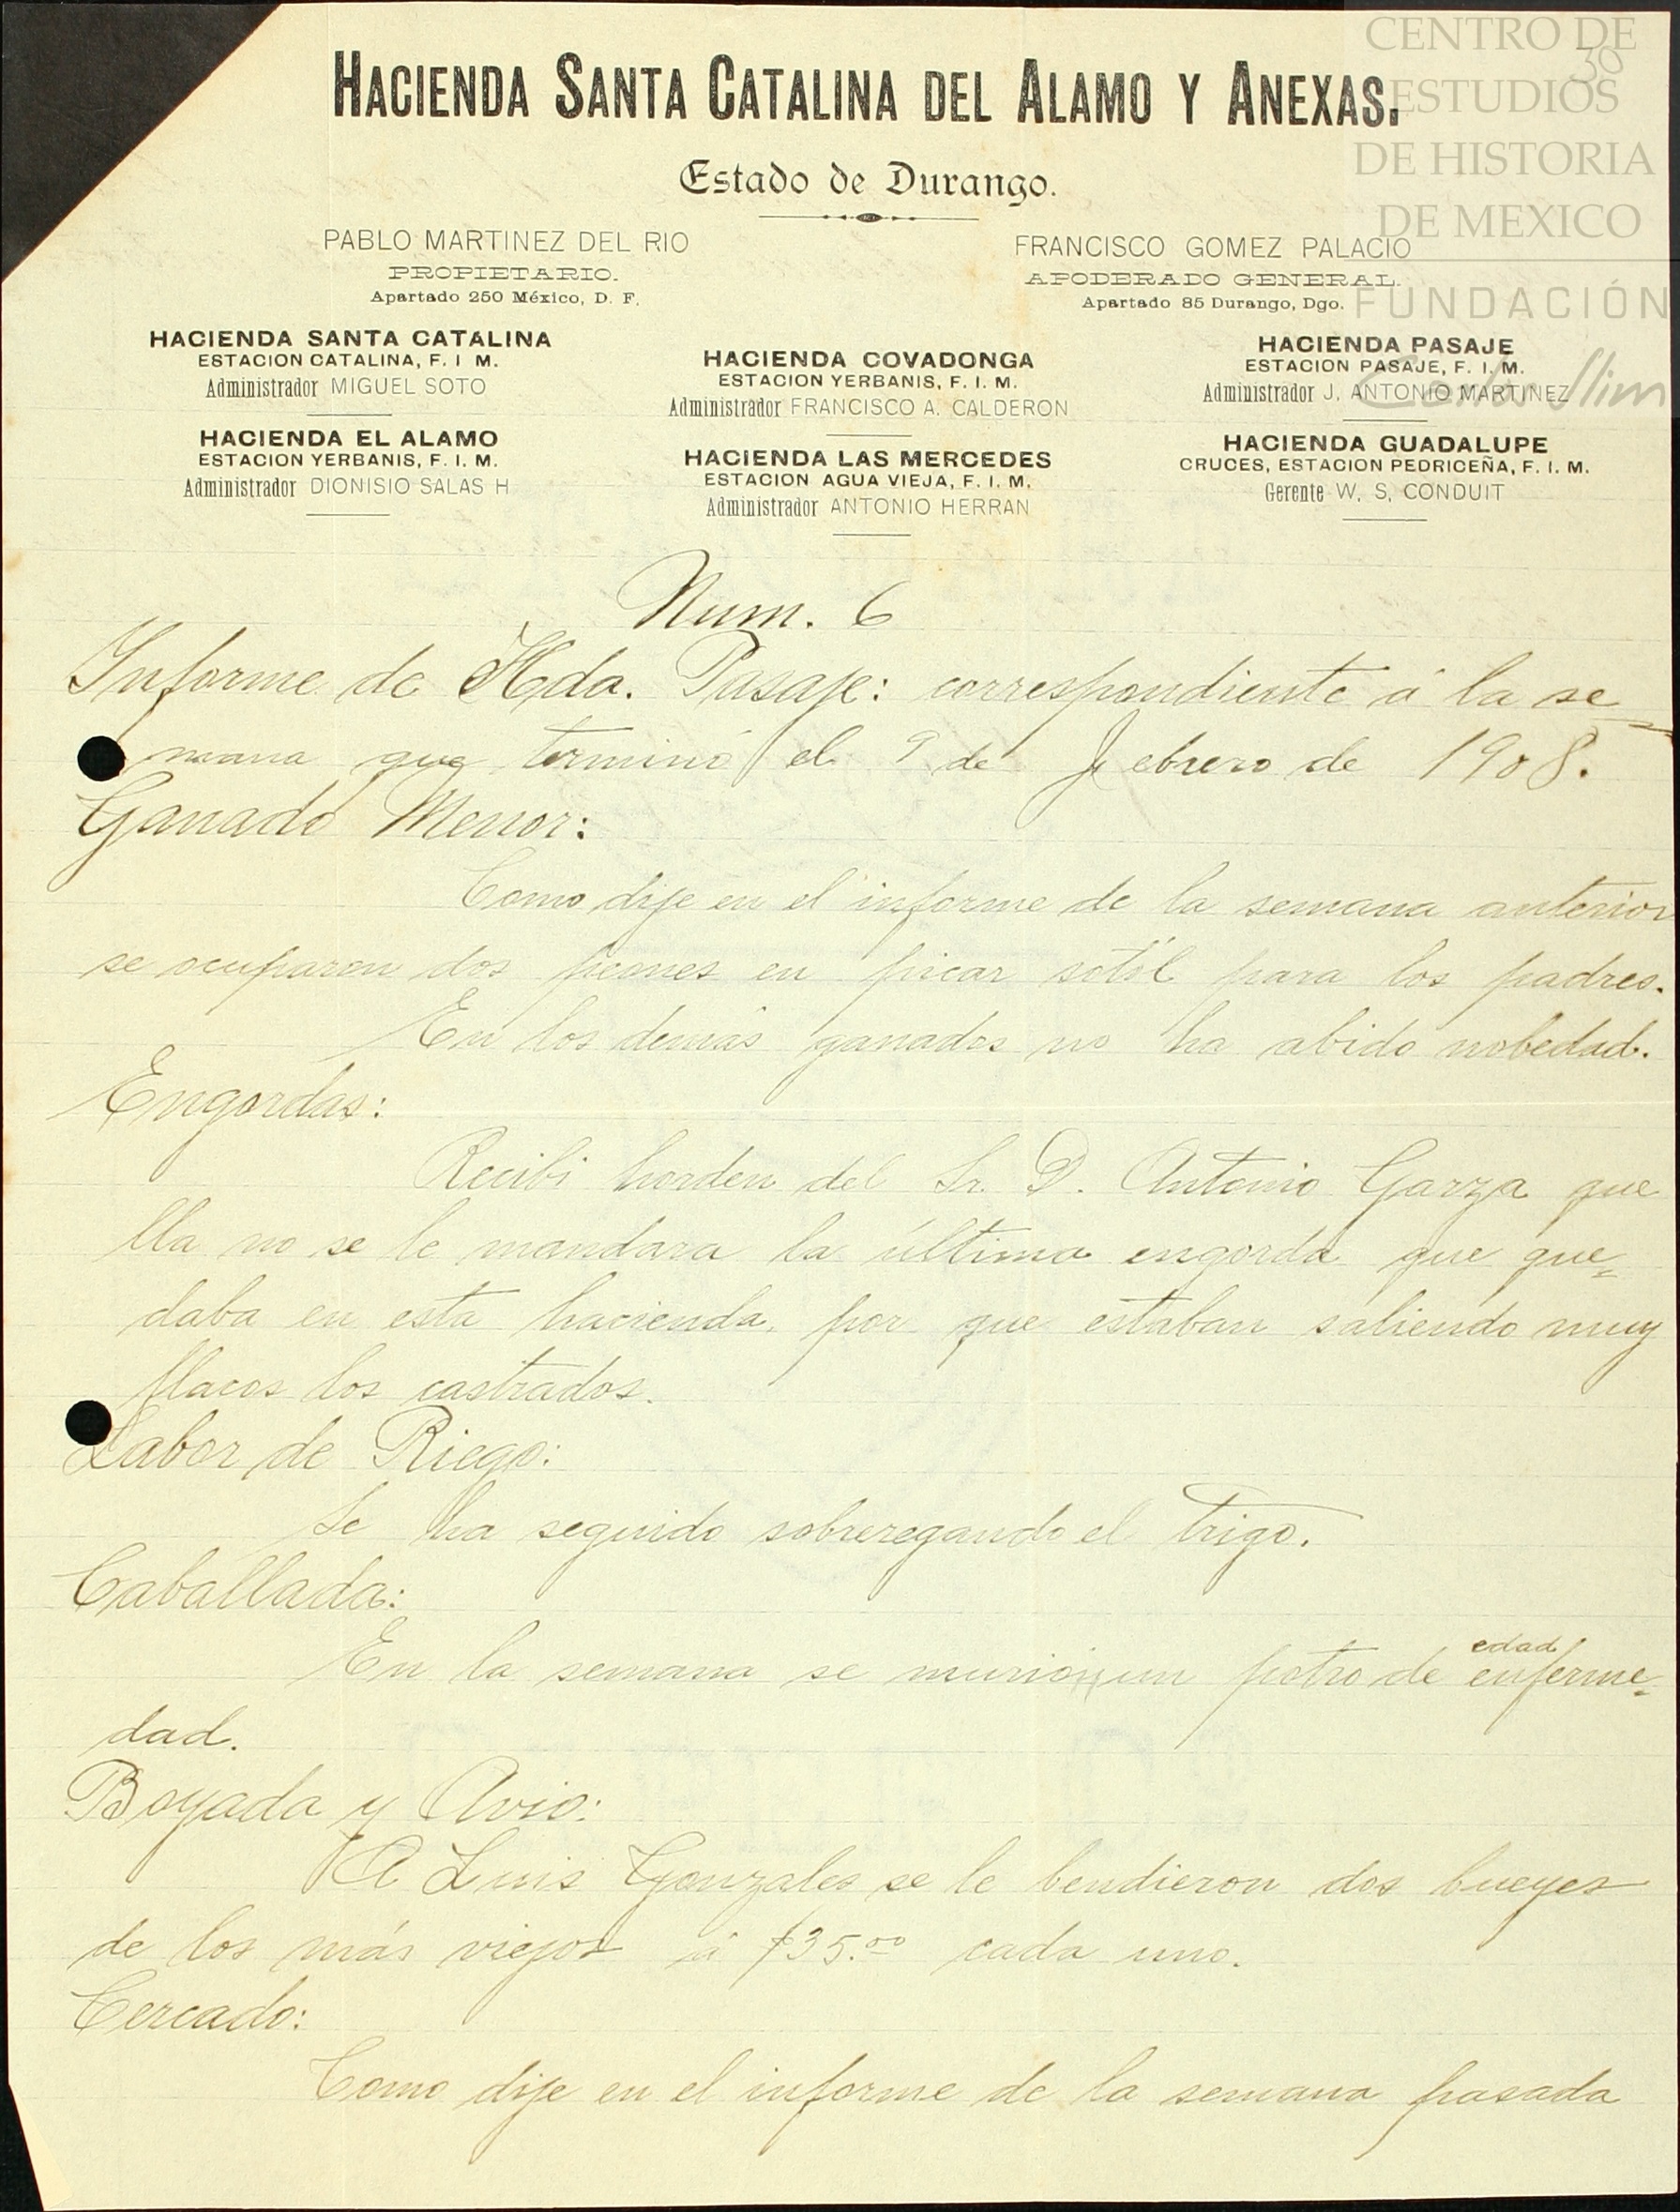 CENTRO DE
ESTUDIOS
DE HISTORIA
DE MEXICO
FUNDACIÓN
Carlos Slim
30
HACIENDA SANTA CATALINA DEL ALAMO Y ANEXAS.
Estado de Durango.
PABLO MARTINEZ DEL RIO
PROPIETARIO.
Apartado 250 México, D. F.
FRANCISCO GOMEZ PALACIO
APODERADO GENERAL.
Apartado 85 Durango, Dgo.
HACIENDA SANTA CATALINA
ESTACION CATALINA, F. I M.
Administrador MIGUEL SOTO
HACIENDA EL ALAMO
ESTACION YERBANIS, F. I. M.
Administrador DIONISIO SALAS H
HACIENDA COVADONGA
ESTACION YERBANIS, F. I. M.
Administrador FRANCISCO A. CALDERON
HACIENDA LAS MERCEDES
ESTACION AGUA VIEJA, F. I. M.
Administrador ANTONIO HERRAN
HACIENDA PASAJE
ESTACION PASAJE, F. I. M.
Administrador J. ANTONIO MARTINEZ
HACIENDA GUADALUPE
CRUCES, ESTACION PEDRICEÑA, F. I. M.
Gerente W. S. CONDUIT
Num. 6
Informe de Hda. Pasaje: correspondiente á la se=
mana que terminó el 9 de Febrero de 1908.
Ganado Menor:
Como dije en el informe de la semana anterior
se ocuparon dos peones en picar sotól para los padres.
En los demás ganados no ha abido nobedad.
Engordas:
Recibi horden del Sr. D. Antonio Garza que
lla no se le mandara la última engorda que que=
daba en esta hacienda, por que estaban saliendo muy
flacos los castrados.
Labor de Riego:
Se ha seguido sobreregando el trigo.
Caballada:
En la semana se murió un potro de edad enferme=
dad.
Boyada y Avio:
A Luis Gonzales se le bendieron dos bueyes
de los más viejos á $35.00 cada uno.
Cercado:
Como dije en el informe de la semana pasada